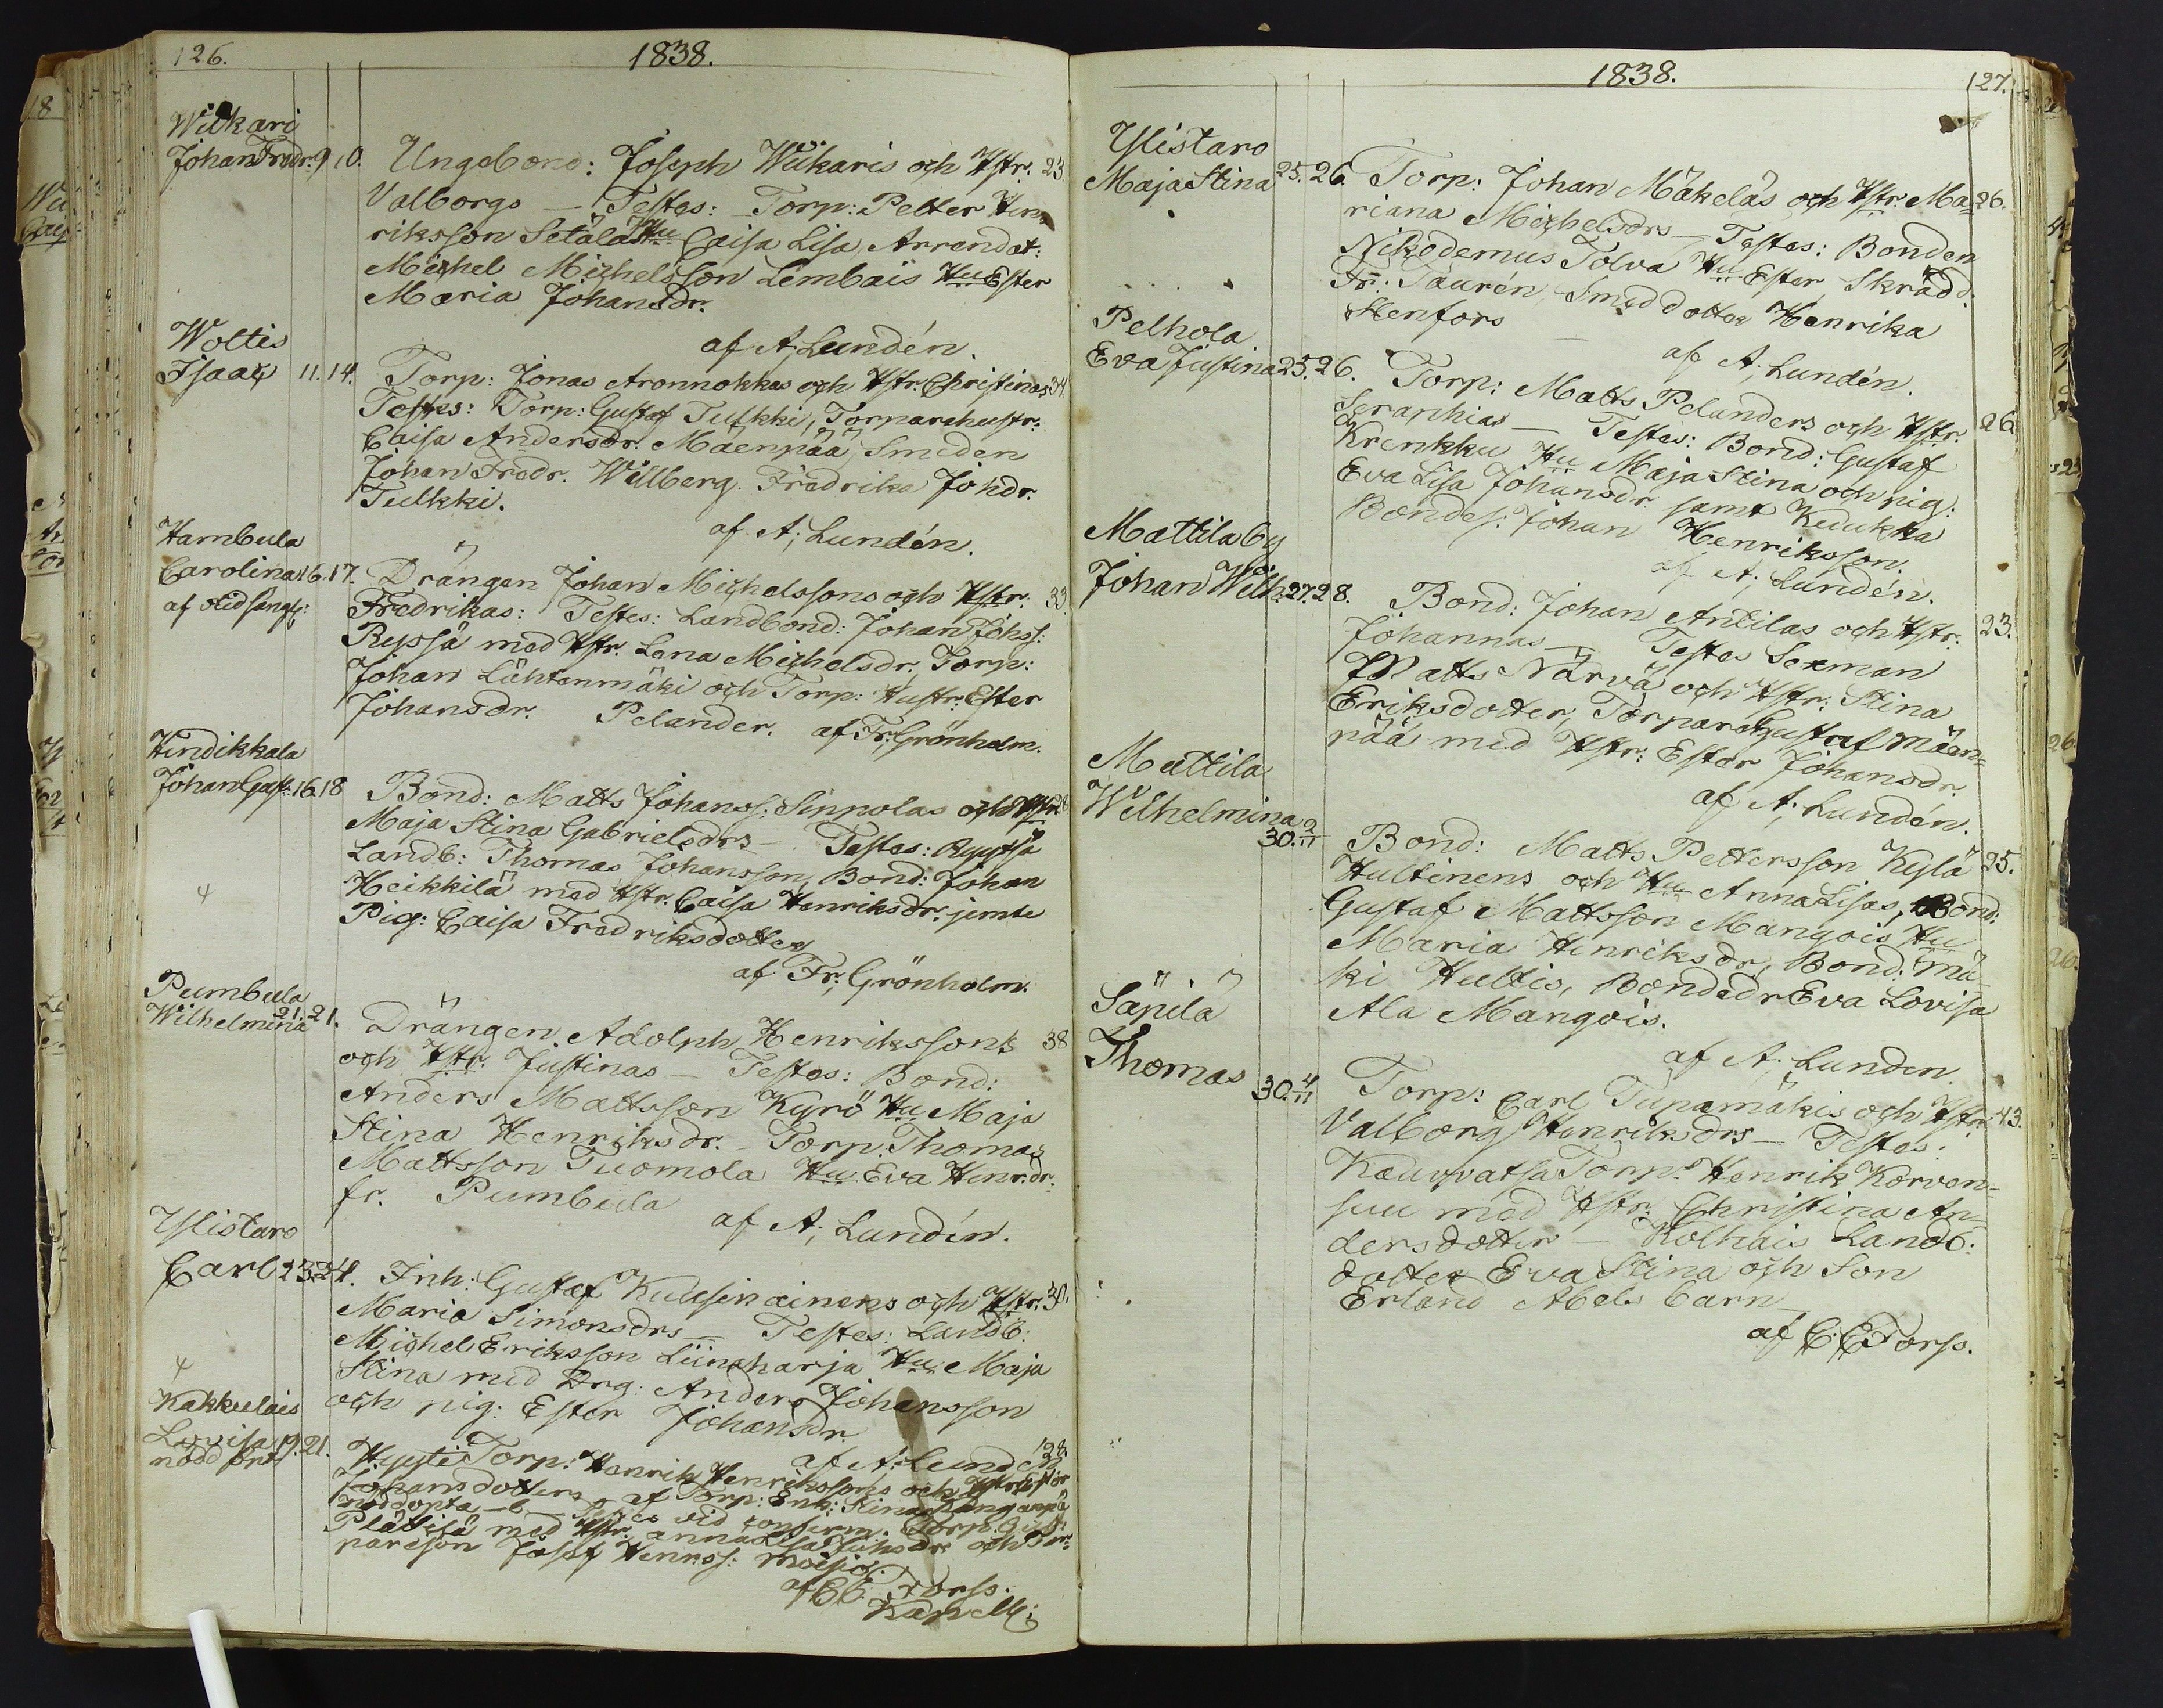 126.
1838.
Wiikari
Johan Fredr. 9 10. Ungsbond: Joseph Wiikaris och Hstr. 23.
Valborgs — Testes: Torp: Petter Hen-
riksson Setälä Hu Caisa Lisa Arrendat:
Michel Michelsson Lembais Hu Ester
Maria Johansdr.
af A; Lundén.
Woltis
Isaac 11. 14. Torp: Jonas Aronnokkas och Hstr. Christinas 34.
Testes: Torp: Gustaf Tulkki, Torparehustr:
Caisa Andersdr. Mäenpää, Smeden
Johan Fredr. Willberg. Fredrika Johdr.
Tulkki.
af A; Lundén.
Hambula
Carolina 16. 17. Drängen Johan Michelssons och Hstr. 33
af Fredrikas: Testes: Landbond: Johan Johss:
Repsä med Hstr. Lena Michelsdr, Torp:
Johan Lähtenmäki och Torp: Hustr: Ester
Johansdr. Pelander. af Fr; Grönholm.
Hindikkala
Johan Gust: 16. 18 Bond: Matts Johanss: Sippolas och Hstr. 28
Maja Stina Gabrielsdrs — Testes: Ryytsä
Landb: Thomas Johansson, Bond: Johan
Heikkilä med Hstr. Caisa Henriksdr. jemte
Pig: Caisa Fredriksdotter
af Fr; Grönholm.
Pumbula
Wilhelmina 21. 21. Drängen Adolph Henrikssons 38
och Hstr. Justinas — Testes: Bond:
Anders Mattsson Kyrö Hu Maja
Stina Henriksdr. — Torp. Thomas
Mattsson Tuomola Hu Eva Henr.dr.
fr. Pumbula
af A; Lundén.
Ylistaro
Carl 23. 24. Inh: Gustaf Kuusinainens och Hstr. 30.
Maria Simonsdrs — Testes: Landb:
Michel Eriksson Liinaharja Hu Maja
Stina med Drg: Anders Johansson
och pig: Ester Johansdr.
af A; Lundén
Kakkulais
Lovisa 19. 21. Hyyti Torp: Henrik Henrikssons och Hstr. Ester 28.
nödd Johansdotters — af Torp: Enk: Stina
nöddöpta — Testes vid confirm. Torp.
Plättilä med Hstr. Anna Lisa och Tor-
pareson Josef Henrss: Moisio.
af C E Forss.
Kap
1838.
127.
Ylistaro
Maja Stina 25. 26. Torp: Johan Mäkeläs och Hstr. Ma- 26.
riana Michelsdrs — Testes: Bonden
Nikodemus Tolva Hu Ester, Skrädd:
Fr: Taurén, Smeddotter Henrika
Stenfors
af A; Lundén.
Pelhola
Eva Justina 25. 26. Torp: Matts Pelanders och Hstr. 26.
Seraphias — Testes: Bond: Gustaf
Krenkku Hu Maja Stina och pig:
Eva Lisa Johansdr. samt Kedukka
Bondes: Johan Henriksson.
af A; Lundén.
Mattila by
Johan Wilh. 27. 28. Bond: Johan Antilas och Hstr. 23.
Johannas — Testes Sexman
Matts Närvä och Hstr: Stina
Eriksdotter, Torparen Gustaf Mäen-
pää med Hstr: Ester Johansdr.
af A; Lundén.
Mattila
Wilhelmina 30. 2/11 Bond: Matts Pettersson Kylä 25.
Hultinens och Hu Anna Lisas, Bond:
Gustaf Mattsson Mangois Hu
Maria Henriksdr, Bond. Mä-
ki Hultis, Bondedr Eva Lovisa
Ala Mangois.
af A; Lunden.
Säpilä
Thomas 30. 4/11 Torp: Carl Tupamäkis och Hstr. 43.
Valborg Henriksdrs — Testes:
Kauvatsa Torp: Henrik Korven-
suu med Hstr: Christina An-
dersdotter — Kolhais Landb:
dotter Eva Stina och Son
Erland Abels barn —
af C; E Forss.